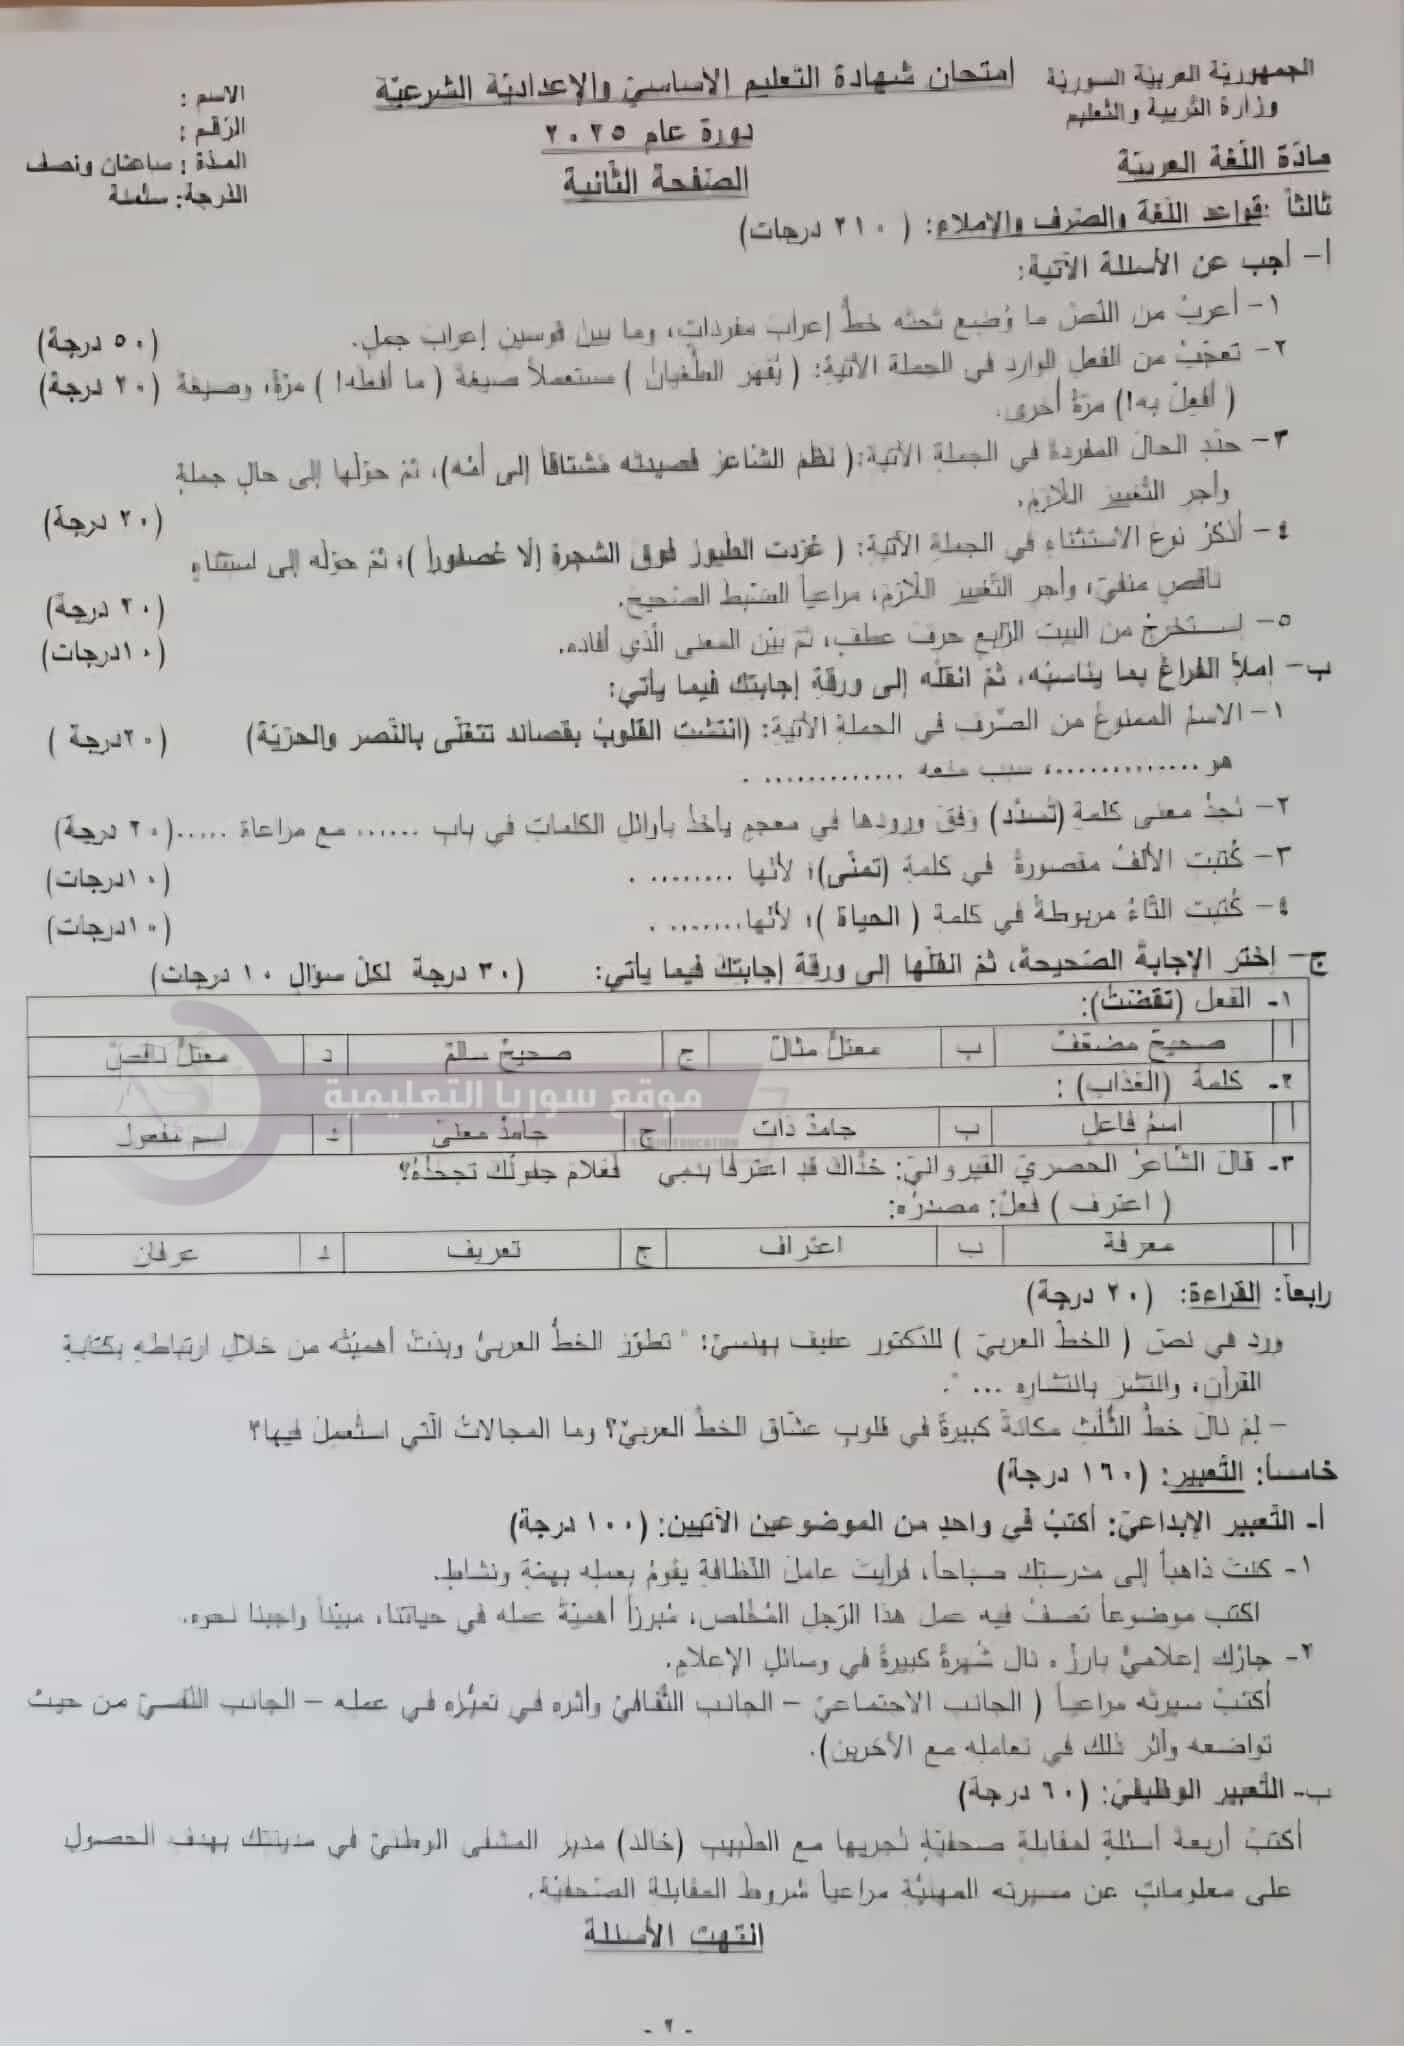 الجمهورية العربية السورية
وزارة التربية والتعليم
امتحان شهادة التعليم الأساسي والإعدادية الشرعيّة
دورة عام ٢٠٢٥
الصّفحة الثّانية
الاسم :
الرقم :
المدّة : ساعتان ونصف
الدّرجة: ستمئة
مادّة اللّغة العربيّة
ثالثاً :قواعد اللّغة والصّرف والإملاء: ( ٢١٠ درجات)
أ- أجب عن الأسئلة الآتية:
١- أعربْ من النّصّ ما وُضِع تحته خطٌّ إعرابَ مفرداتٍ، وما بين قوسين إعرابَ جملٍ. (٥٠ درجة)
٢- تعجّبْ من الفعل الوارد في الجملة الآتية: ( يُقهر الطّغيانُ ) مستعملاً صيغة ( ما أفعله! ) مرّةً، وصيغة (٢٠ درجة)
( أفعِلْ به!) مرّةً أخرى.
٣- حدّدِ الحالَ المفردة في الجملة الآتية:( نظم الشّاعرُ قصيدته مُشتاقاً إلى أمّه)، ثمّ حوّلها إلى حالٍ جملةٍ
وأجرِ التّغييرَ اللّازمَ. (٢٠ درجة)
٤- اُذكرْ نوعَ الاستثناءِ في الجملةِ الآتيةِ: ( غرّدت الطّيورُ فوق الشّجرة إلّا عصفوراً )، ثمّ حوّله إلى استثناءٍ
ناقصٍ منفيّ، وأجرِ التّغييرَ اللّازمَ، مراعياً الضّبط الصّحيح. (٢٠ درجة)
٥- استخرجْ من البيت الرّابعِ حرفَ عطفٍ، ثمّ بيّن المعنى الّذي أفاده. (١٠درجات)
ب- اِملأِ الفراغَ بما يناسبُه، ثمّ انقلْه إلى ورقةِ إجابتِك فيما يأتي:
١- الاسمُ الممنوعُ من الصّرفِ في الجملةِ الآتيةِ: (انتشت القلوبُ بقصائد تتغنّى بالنّصر والحرّيّة) (٢٠درجة )
هو..............، سبب منعه ............. .
٢- نجدُ معنى كلمةِ (تسدّد) وَفقَ ورودِها في معجمٍ يأخذُ بأوائلِ الكلماتِ في باب ...... مع مراعاة .....(٢٠ درجة)
٣- كُتبت الألفُ مقصورةً في كلمة (تمنّى)؛ لأنّها ........ . (١٠درجات)
٤- كُتبت التّاءُ مربوطةً في كلمة ( الحياة )؛ لأنّها........ . (١٠درجات)
ج- اِختر الإجابة الصّحيحة، ثمّ انقلْها إلى ورقة إجابتك فيما يأتي: (٣٠ درجة لكلّ سؤالٍ ١٠ درجات)
١- الفعل (تقضّتْ):
أ صحيحٌ مضعّفٌ ب معتلٌّ مثالٌ ج صحيحٌ سالمٌ د معتلٌّ ناقصٌ
٢- كلمةُ (العذاب) :
أ اسمُ فاعلٍ ب جامدُ ذاتٍ ج جامدُ معنىً د اسم مفعول
موقع سوريا التعليمية
٣- قالَ الشّاعرُ الحُصريّ القيروانيّ: خدّاك قد اعترفا بدمي فعَلامَ جفونُك تجحدُهُ؟
( اعترف ) فعلٌ: مصدرُه:
أ معرفة ب اعتراف ج تعريف د عرفان
رابعاً: القراءة: (٢٠ درجة)
ورد في نصّ ( الخطّ العربيّ ) للدّكتور عفيف بهنسيّ: " تطوّر الخطُّ العربيُّ وبدتْ أهميّتُه من خلالِ ارتباطهِ بكتابةِ
القرآنِ، وانتشر بانتشاره ... ".
- لِمَ نالَ خطُّ الثُّلُثِ مكانةً كبيرةً في قلوبِ عشّاقِ الخطّ العربيّ؟ وما المجالاتُ الّتي استُعمِلَ فيها؟
خامساً: التّعبير: (١٦٠ درجة)
أ- التّعبير الإبداعيّ: اُكتبْ في واحدٍ من الموضوعين الآتيين: (١٠٠ درجة)
١- كنتَ ذاهباً إلى مدرستِك صباحاً، فرأيتَ عاملَ النّظافةِ يقومُ بعملِه بهمّةٍ ونشاطٍ.
اكتب موضوعاً تصفُ فيه عمل هذا الرّجلِ المُخلص، مُبرزاً أهميّةَ عمله في حياتنا، مبيّناً واجبنا نحوه.
٢- جارُك إعلاميٌّ بارزٌ، نال شُهرةً كبيرةً في وسائلِ الإعلامِ.
اُكتبْ سيرتَه مراعياً ( الجانب الاجتماعيّ – الجانب الثّقافيّ وأثره في تميّزه في عمله – الجانب النّفسيّ من حيث
تواضعه وأثر ذلك في تعامله مع الآخرين).
ب- التّعبير الوظيفيّ: (٦٠ درجة)
اُكتبْ أربعةَ أسئلةٍ لمقابلةٍ صحفيّةٍ تُجريها مع الطّبيبِ (خالد) مدير المشفى الوطنيّ في مدينتك بهدفِ الحصول
على معلوماتٍ عن مسيرته المهنيّة مراعياً شروط المقابلة الصّحفيّة.
انتهت الأسئلة
- ٢ -